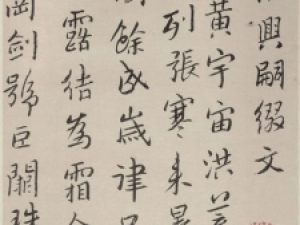 興嗣綴文
黃宇宙洪荒
列張寒來暑
餘成歲律呂
露結為霜金
岡劍號巨闕珠